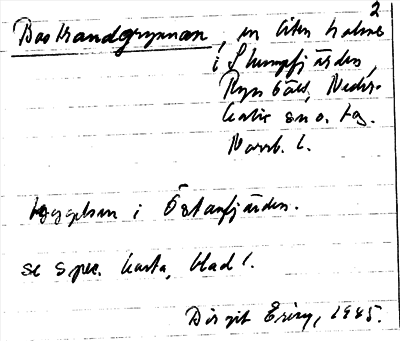 2
Bastrandgrynnan, en liten holme
i Stumpfjärden,
Ryss bält, Neder-
kalix sn o. tg.
Norrb. l.
i Östanfjärden.
se spec. karta, blad 1.
Birgit Ering, 1985.